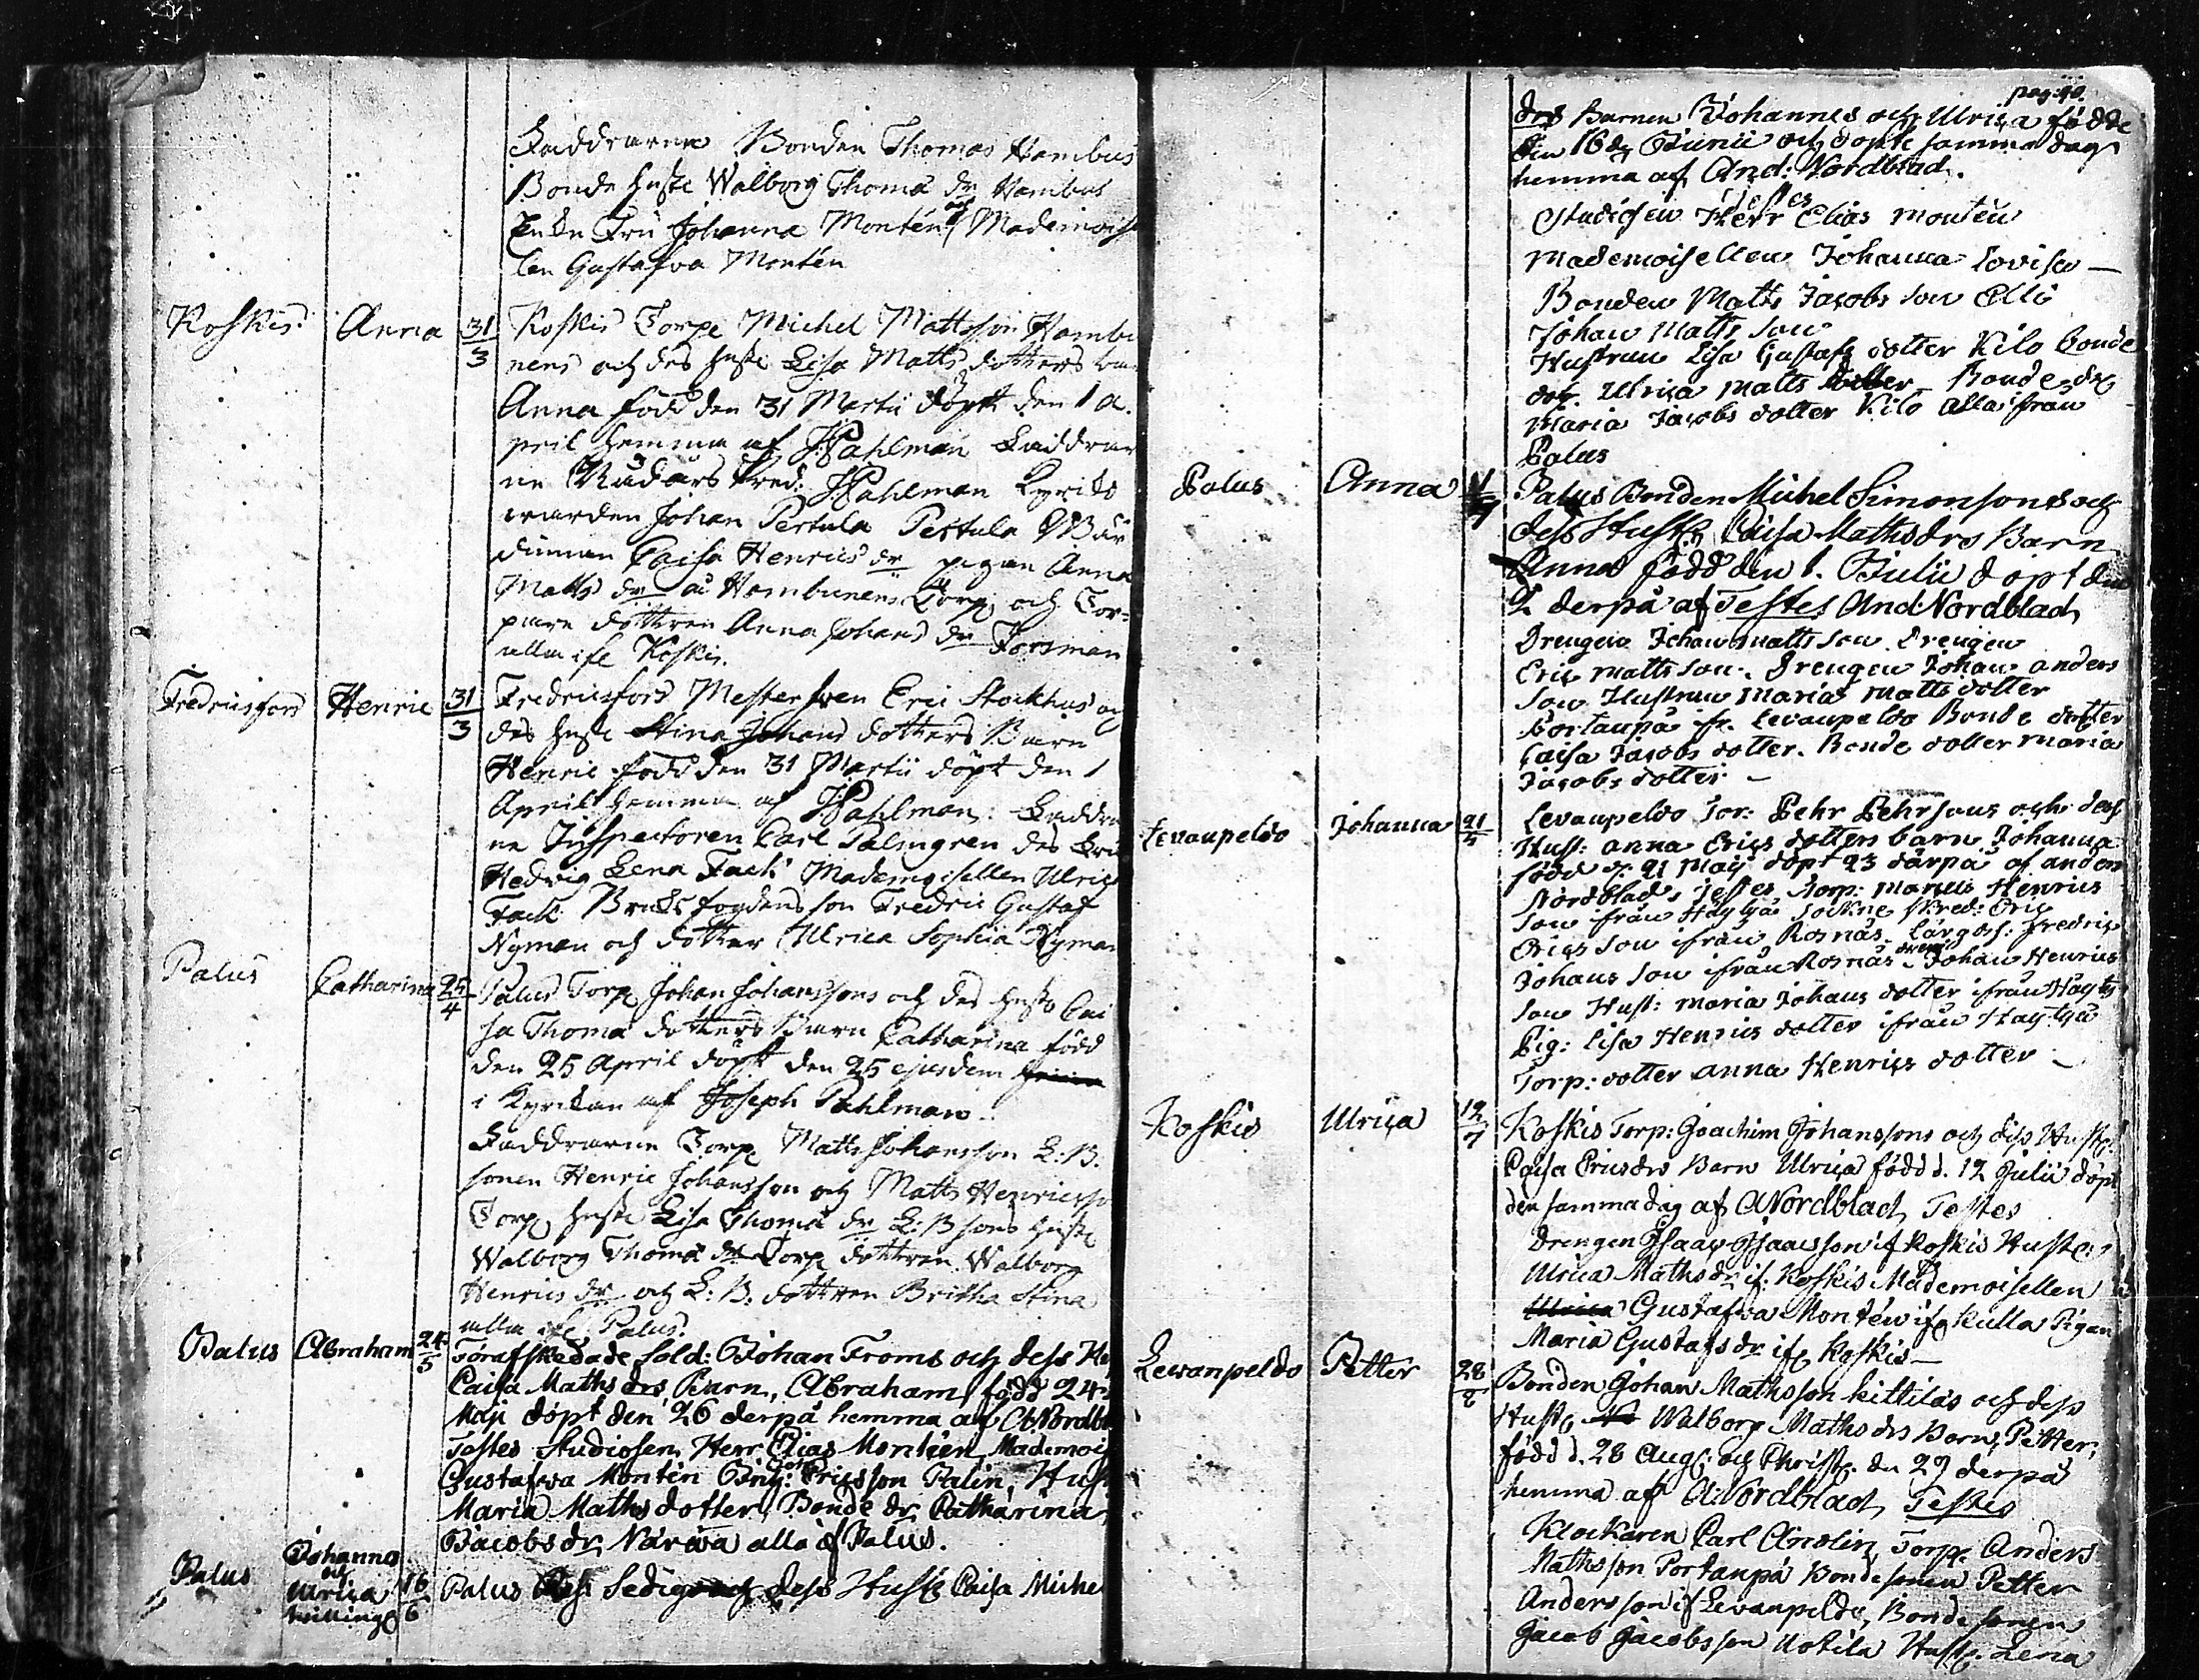 Faddrarne Bonden Thomas Hambus
Bonde hust: Walborg Thomæ dr Hambus
Enke Fru Johanna Montén och Mademoise
len Gustafva Montén
Koskis Anna 31/3 Koskis Torp: Michel Mattsson Hambu
nens och des hust: Lisa Matts dotters bar
Anna född den 31 Martii döpt den 1 A.
pril hemma af J Pahlman Faddrar
ne Rudars Pred: J Pahlman Kyrko
warden Johan Pertula Pertula Wär
dinnan Caisa Henrics dr pigan Anna
Matts dr å Hambunens Torp och Tor-
pare dottren Anna Johans dr Forsman
alla if: Koskis.
Fredricsfors Henric 31/3 Fredricsfors Mestersven Eric Stockhus oc
des hust: Stina Johans dotters Barn
Henric född den 31 Martii döpt den 1
April hemma af J Pahlman: Faddra
ne Inspectoren Carl Palmgren des Fru
Hedvig Lena Fack Mademoisellen Ulrica
Fack Bruksfogdens son Fredric Gustaf
Nyman och dotter Ulrica Sophia Nyman
Palus Catharina 25/4 Palus Torp: Johan Johanssons och des hust: Cai
sa Thomæ dotters Barn Catharina född
den 25 April döpt den 25 ejusdem
i Kyrckan af Joseph Pahlman
Faddrarne Torp: Matts Johansson L: B.
sonen Henric Johansson och Matts Henricsso
Torp: hust: Lisa Thomæ dr L: B sons hust:
Walborg Thomæ dr Torp: dottren Walborg
Henrics dr och L: B: dottren Britha Stina
alla if: Palus.
Palus Abraham 24/5 Förafskedade Sold: Johan Froms och dess Hu
Caisa Maths drs Barn, Abraham, född 24
Maji döpt den 26 derpå hemma af A: Nordbl
Testes Studiosen Herr Elias Montén, Mademois
Gustafva Montén Ericsson Palin, Hust
Maria Maths dotter, Bonde dr Catharina
Jacobs dr Närwa alla if Palus.
Palus Johannes och Ulrica tvilling 16/6 Palus Sediga och dess Hust: Caisa Miche
pag: 40.
drs Barnen Johannes och Ulrica födde
den 16 de Junii och döpte samma dag
hemma af And: Nordblad.
Testes
Studiosen Herr Elias Montén
Mademoisellen Johanna Lovisa —
Bonden Matts Jacobs son Elli
Johan Matts son
Hustrun Lisa Gustafs dotter Kilo Bonde
dotr. Ulrica Matts dotter Bonde dr
Maria Jacobs dotter Kilo alla ifrån
Palus
Palus Anna 1/7 Palus Bonden Michel Simonsons och
dess Hust: Caisa Mathsdrs Barn
Anna född den 1. Julii döpt den
2 derpå af Testes And: Nordblad
Drengen Johan Matts son Drengen
Eric Matts son. Drengen Johan Anders
son Hustrun Maria Matts dotter
Portanpä fr. Levanpeldo Bonde dotter
Caisa Jacobs dotter. Bonde dotter Maria
Jacobs dotter —
Levanpeldo Johanna 21/5 Levanpeldo Tor: Pehr Pehrsons och des
Hust: Anna Erics dotters barn Johanna
född d: 21 Maij döpt 23 därpå af Anders
Nordblad, Testes Torp: Marcus Henrics
son ifrån Häytjä sockne skred: Eric
Erics son ifrån Rosnäs, Färgges: Fredric
Johans son ifrån Rosnäs dreng Johan Henrics
son Hust: Maria Johans dotter ifrån Häytjä
Pig: Lisa Henrics dotter ifrån Häytjä
Torp: dotter Anna Henrics dotter —
Koskis Ulrica 12/7 Koskis Torp: Joachim Johanssons och dess Hust:
Caisa Ericsdrs Barn Ulrica född d. 12 Julii döpt
den samma dag af A Nordblad, Testes
Drengen Isaac Isaacsson if Koskis Hust:
Ulrica Maths dr if: Koskis Mademoisellen
Ulrica Gustafva Montén if: Kulla Pigan
Maria Gustafs dr if: Koskis —
Lewanpeldo Petter 28/8 Bonden Johan Mathsson Kittiläs och dess
Hust: Walborg Maths drs Barn, Petter,
född d. 28 Aug: och Christ: den 29 derpå
hemma af A: Nordblad, Testes
Klockaren Carl Anolin, Torp: Anders
Mathsson Portanpä Bondesonen Petter
Andersson if Levanpeldo, Bonde sonen
Jacob Jacobsson Uotila Hust: Lena